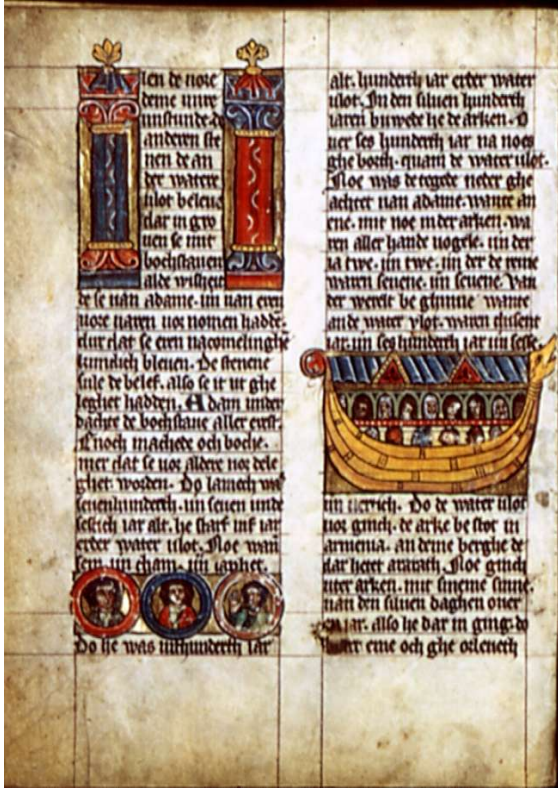 len de vore
deme vure
un stunde de
anderen ste
nen de an
der watere
vlot beleve
dar in gro
ven se mit
bochstaven
alde wisheit
de se van adame. un van eren
vore varen vor nomen hadde.
dur dat se eren nacomelinghe
kundich bleven. De stenene
sule de belef. also se it ut ghe
leghet hadden. Adam under
dachte de bochstave aller erst.
Enoch machede och boche.
mer dat se vor aldere vor dele
ghet worden. Do lamech was
sevenhunderth. un seven unde
sestich iar alt. he starf vif iar
erder water vlot. Noe wan
sem. un cham. un iaphet.
Do he was vifhunderth iar
alt. hunderth iar erder water
vlot. In den silven hunderth
iaren buwede he de arken. O
ver ses hunderth iar na noes
ghe borth. quam de water vlot.
Noe was de tegede neder ghe
achtet van adame. wante an
ene. mit noe in der arken. wa
ren aller hande vogele. un der
ia twe. un twe. un der de reine
waren sevene. un sevene. Van
der werelt be ghinne wante
an de water vlot. waren dusent
iar. un ses hunderth iar un sesse
un vertich. Do de water vlot
vor ginch. de arke be stot in
armenia. an deme berghe de
dar heret ararath. Noe ginch
uter arken. mit sineme sinne.
van den silven daghen over
en iar. also he dar in ging. do
eme och ghe orleveth